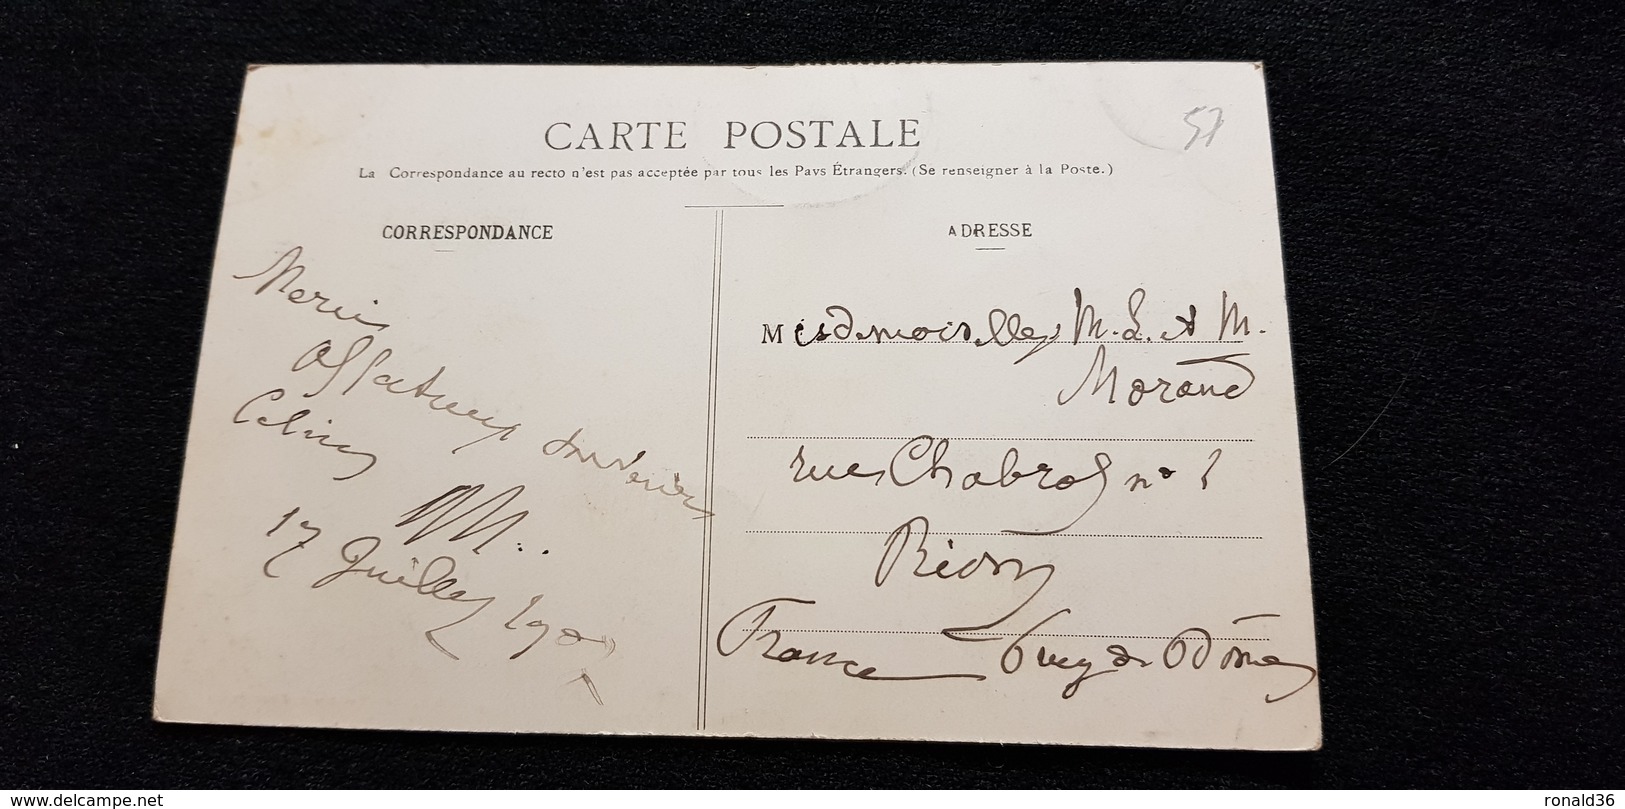 57
CARTE POSTALE
La Correspondance au recto n'est pas acceptée par tous les Pays Étrangers. (Se renseigner à la Poste.)
CORRESPONDANCE
Affectueux souvenirs
17 Juillet
ADRESSE
Mesdemoiselles M. L. et M.
Morand
rue Chabrol no 1
Riom
France Puy de Dôme
delcampe.net
ronald36